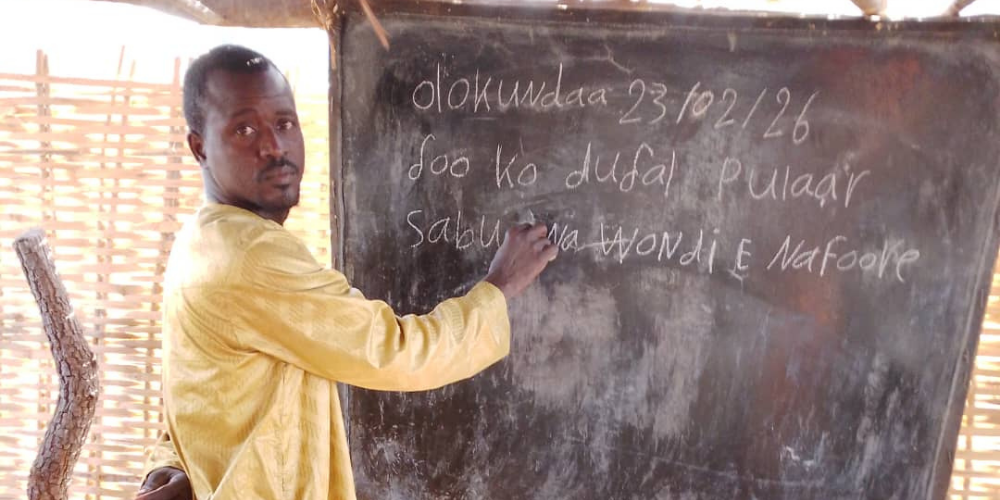 olokundaa 23/02/26
ɗoo ko dufal Pulaar
Sabu WONdi E Nafoore